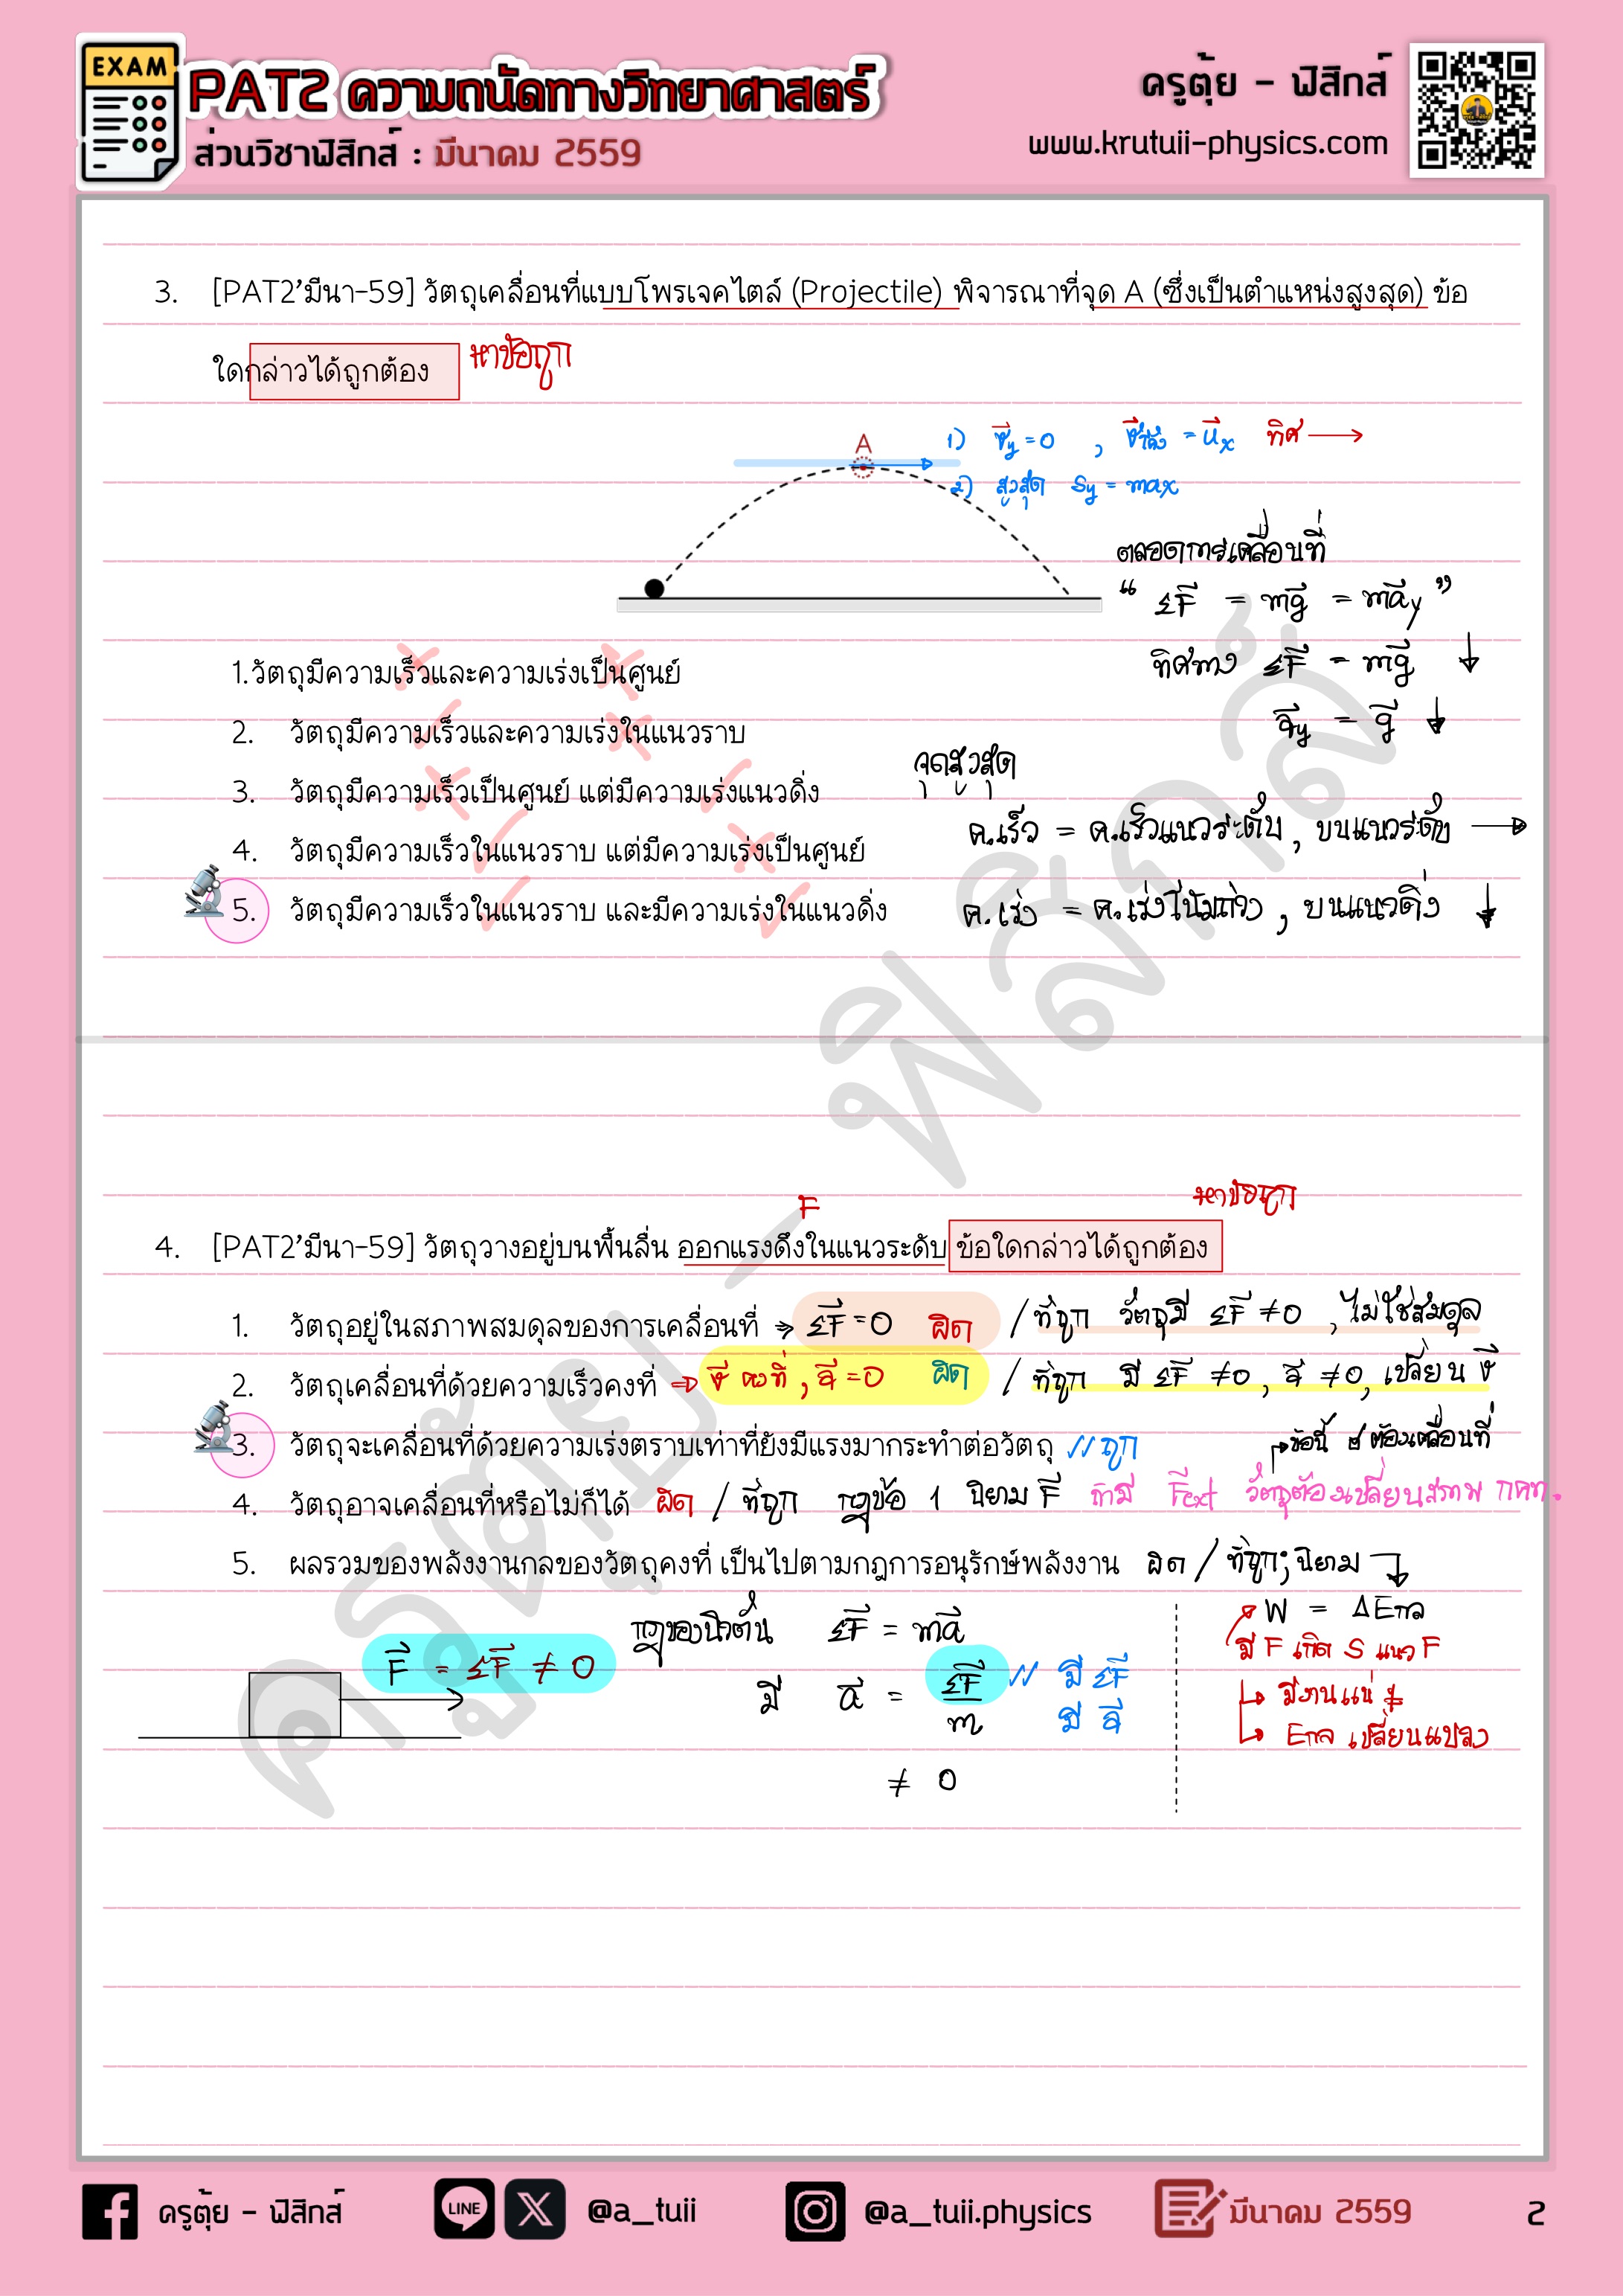 EXAM
PAT2 ความถนัดทางวิทยาศาสตร์
ส่วนวิชาฟิสิกส์ : มีนาคม 2559
ครูตุ้ย - ฟิสิกส์
www.krutuii-physics.com
3. [PAT2'มีนา-59] วัตถุเคลื่อนที่แบบโพรเจคไตล์ (Projectile) พิจารณาที่จุด A (ซึ่งเป็นตำแหน่งสูงสุด) ข้อ
ใดกล่าวได้ถูกต้อง หาข้อถูก
A
1) v⃗y = 0 , = u⃗x ทิศ →
2) สูงสุด Sy = max
ตลอดการเคลื่อนที่
“ ΣF⃗ = mg⃗ = ma⃗y ”
ทิศทาง ΣF⃗ = mg⃗ ↓
a⃗y = g⃗ ↓
1.วัตถุมีความเร็วและความเร่งเป็นศูนย์
2. วัตถุมีความเร็วและความเร่งในแนวราบ
3. วัตถุมีความเร็วเป็นศูนย์ แต่มีความเร่งแนวดิ่ง
4. วัตถุมีความเร็วในแนวราบ แต่มีความเร่งเป็นศูนย์
5. วัตถุมีความเร็วในแนวราบ และมีความเร่งในแนวดิ่ง
จุดสูงสุด
ค.เร็ว = ค.เร็วแนวระดับ , บนแนวระดับ →
ค.เร่ง = ค.เร่งโน้มถ่วง , บนแนวดิ่ง ↓
ครูตุ้ย - ฟิสิกส์
F
หาข้อถูก
4. [PAT2'มีนา-59] วัตถุวางอยู่บนพื้นลื่น ออกแรงดึงในแนวระดับ ข้อใดกล่าวได้ถูกต้อง
1. วัตถุอยู่ในสภาพสมดุลของการเคลื่อนที่ → ΣF⃗ = 0 ผิด / ที่ถูก วัตถุมี ΣF⃗ ≠ 0 , ไม่ใช่สมดุล
2. วัตถุเคลื่อนที่ด้วยความเร็วคงที่ ⇒ v⃗ คงที่ , a⃗ = 0 ผิด / ที่ถูก มี ΣF⃗ ≠ 0 , a⃗ ≠ 0, เปลี่ยน v⃗
3. วัตถุจะเคลื่อนที่ด้วยความเร่งตราบเท่าที่ยังมีแรงมากระทำต่อวัตถุ // ถูก
ข้อนี้ ต้องเคลื่อนที่
4. วัตถุอาจเคลื่อนที่หรือไม่ก็ได้ ผิด / ที่ถูก กฎข้อ 1 นิยาม F⃗ ถ้ามี F⃗ext วัตถุต้องเปลี่ยนสภาพ กคท.
5. ผลรวมของพลังงานกลของวัตถุคงที่ เป็นไปตามกฎการอนุรักษ์พลังงาน ผิด / ที่ถูก ; นิยาม
F⃗ = ΣF⃗ ≠ 0
กฎของนิวตัน ΣF⃗ = ma⃗
มี a⃗ = ΣF⃗ / m // มี ΣF⃗
มี a⃗
≠ 0
W = ΔEกล
มี F เกิด S แนว F
มีงานแน่ ๆ
Eกล เปลี่ยนแปลง
ครูตุ้ย - ฟิสิกส์
LINE
@a_tuii
@a_tuii.physics
มีนาคม 2559
2